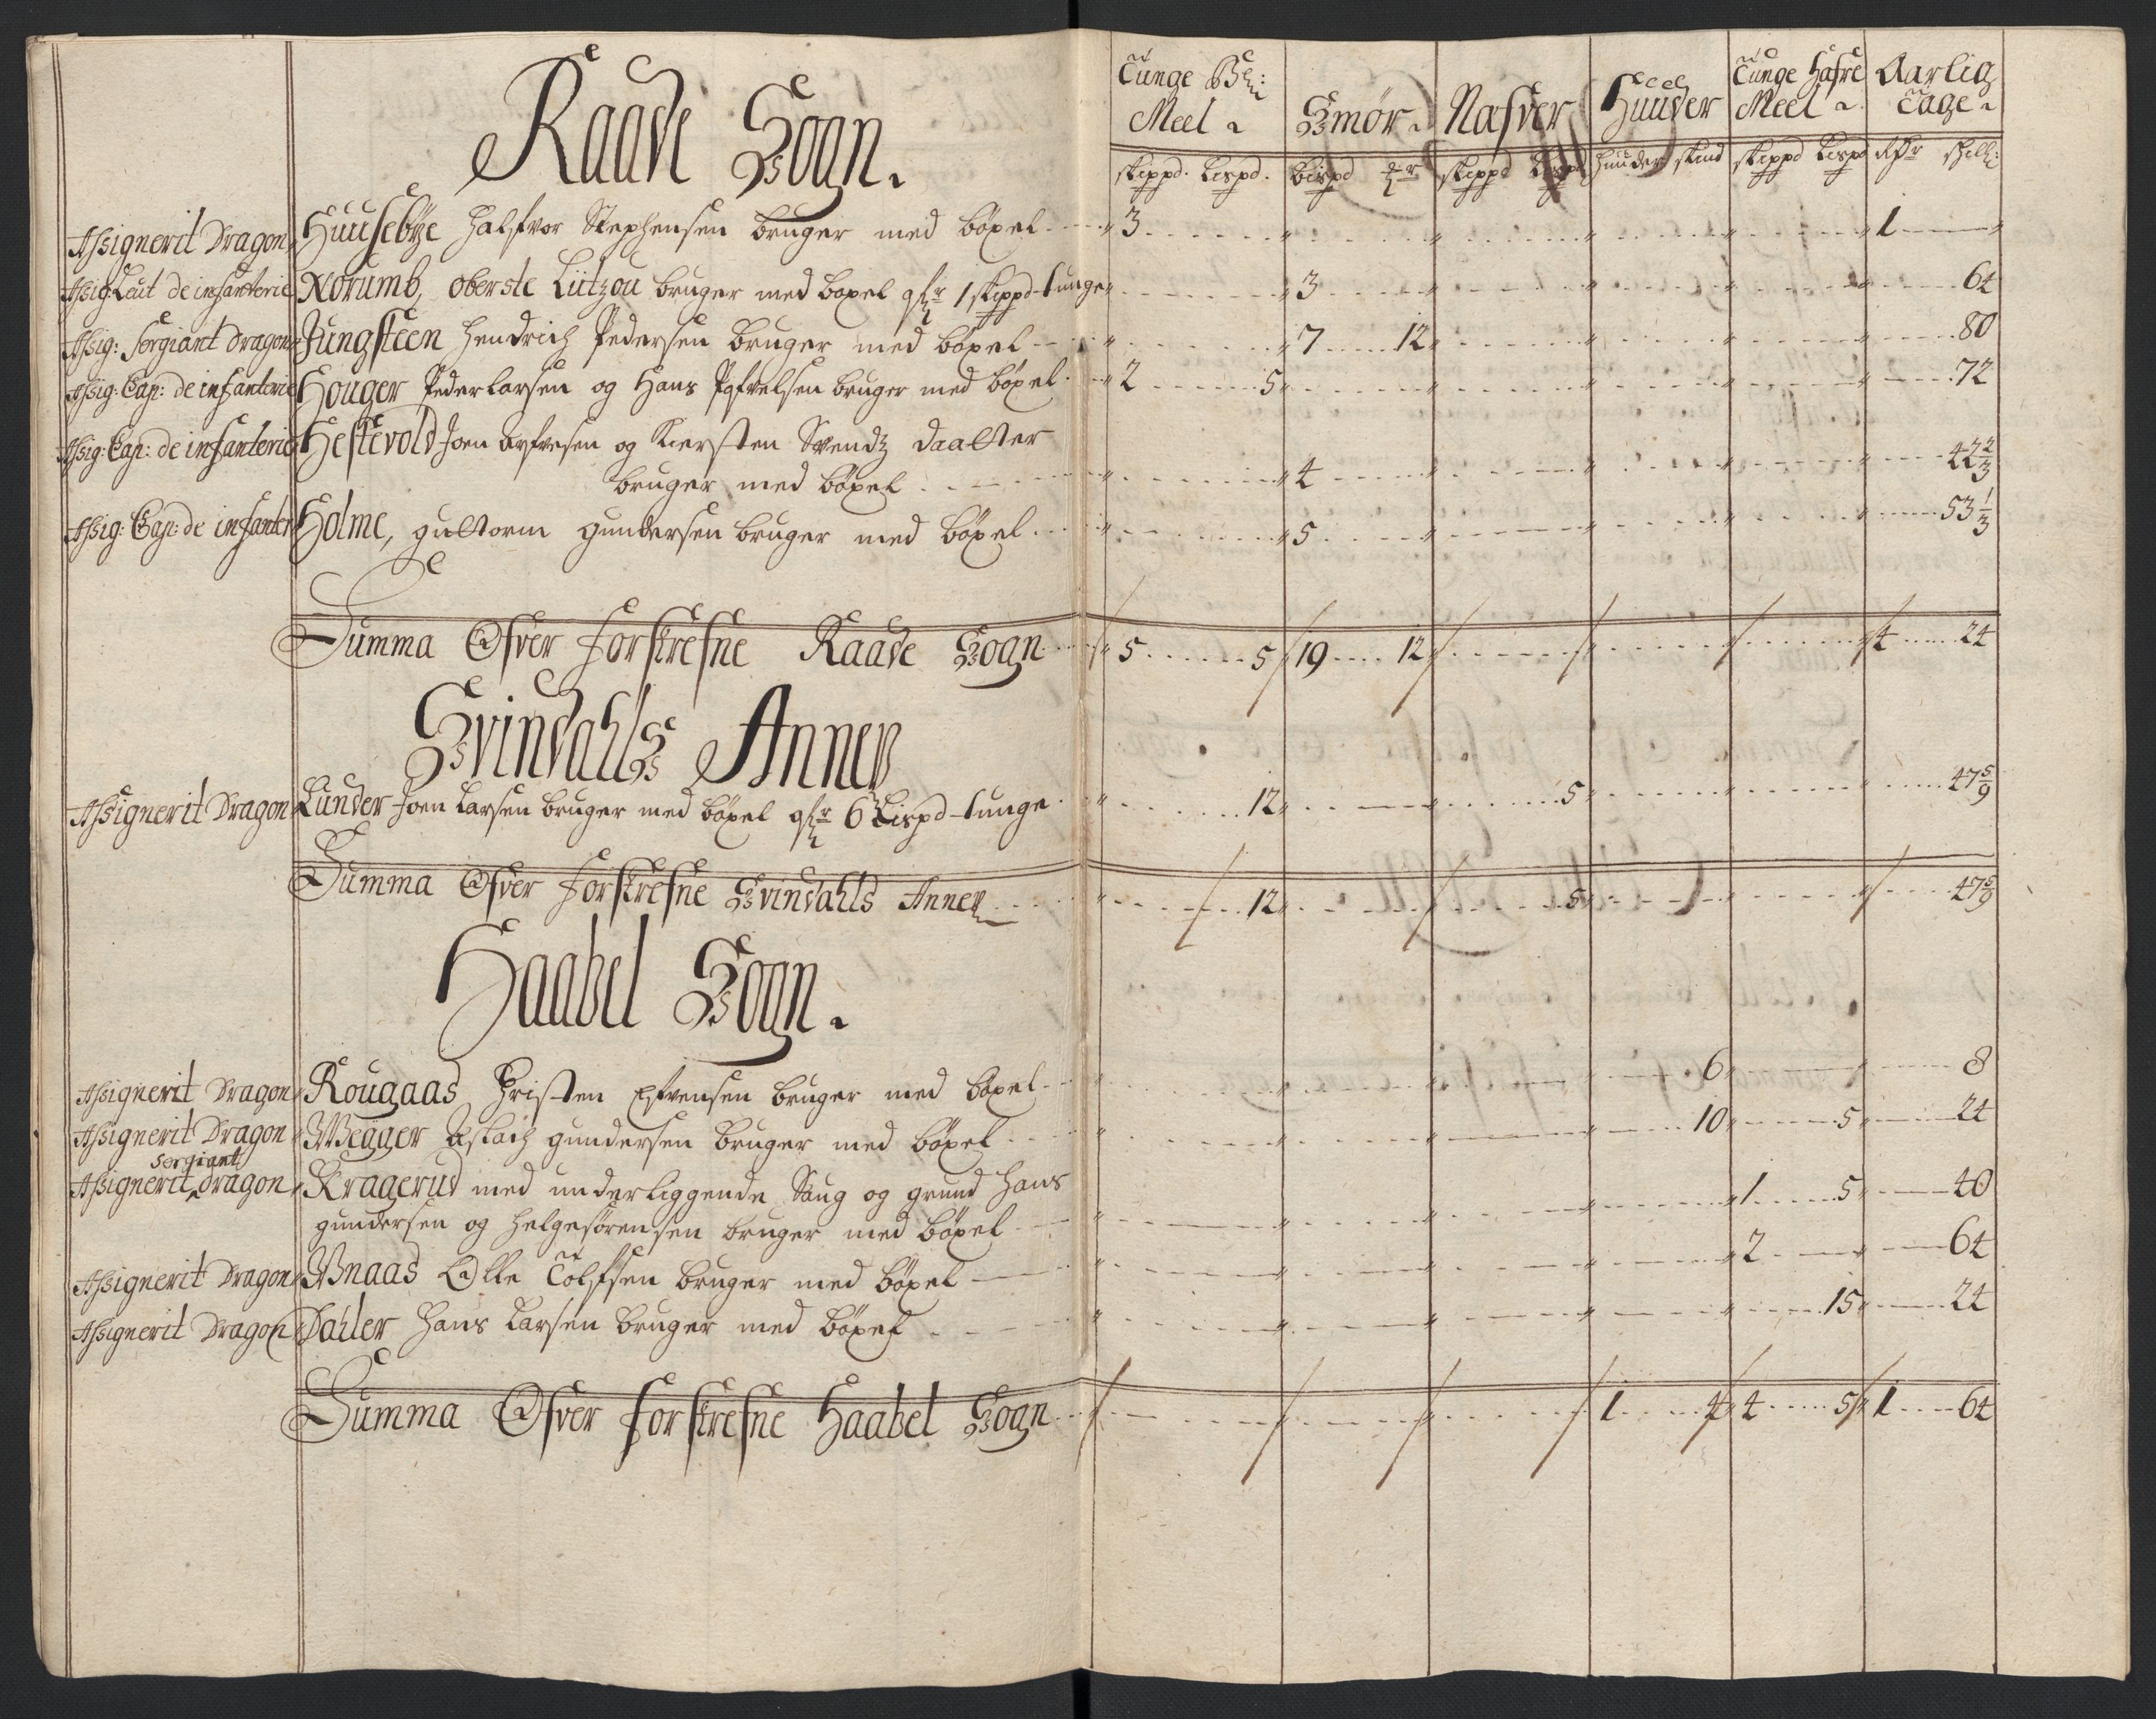 Raade Sogn.
Tunge Be:
Meel
Smør
Nafver
Huuder
Tunge Hafre
Meel
Aarlig
Tage
skippd. Lispd. Bispd skippd Lispd Huuder skind skippd Lispd Rdr shill:
Assignerit Dragon Huusebye Halfvor Stephensen bruger med böxel 3 1
Assig: Leut de infanterie Norumb, oberste Lützou bruger med böxel 1 skippd tunge 3 64
Assig: Sergiant dragon Jungsteen Hendrich Pedersen bruger med böxel 7 12 80
Assig: Cap: de infanterie Houger Peder Larsen og Hans bruger med böxel 2 5 72
Assig: Cap: de infanterie Hestevold Joen og Kiersten Svendz daatter
bruger med böxel 4 42 2/3
Assig: Cap: de infanteri Holme, guttorm gundersen bruger med böxel 5 53 1/3
Summa Ofver forskrefne Raade Sogn 5 5 19 12 4 24
Svindahls Annex
Assignerit Dragon Lunder Joen Larsen bruger med böxel 6 Lispd tunge 12 5 47 5/9
Summa Ofver forskrefne Svindahls Annex 12 5 47 5/9
Haabel Sogn.
Assignerit Dragon Rougaas Christen bruger med böxel 6 8
Assignerit Dragon Wegger Aslach gundersen bruger med böxel 10 5 24
Sergiant
Assignerit dragon Kragerud med underliggende Saug og grund Hans
gundersen og Helge sörensen bruger med böxel 1 5 40
Assignerit Dragon Wnaas Olle Tolfsen bruger med böxel 2 64
Assignerit Dragon Dahler Hans Larsen bruger med böxel 15 24
Summa Ofver forskrefne Haabel Sogn 1 4 4 5 1 64